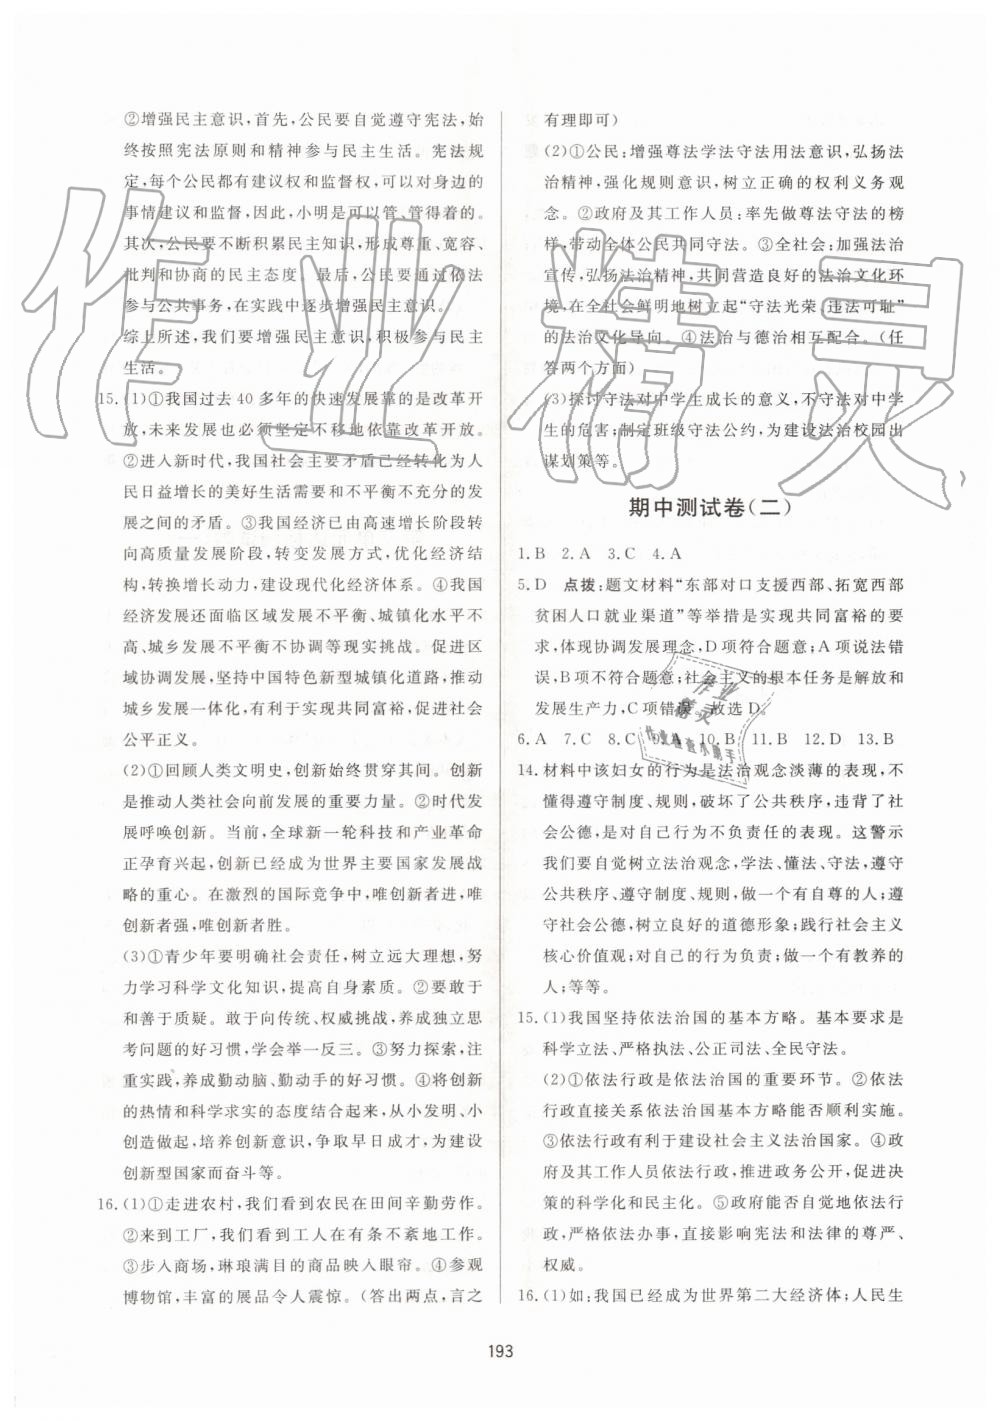 ②增强民主意识,首先,公民要自觉遵守宪法,始
终按照宪法原则和精神参与民主生活。宪法规
定,每个公民都有建议权和监督权,可以对身边的
事情建议和监督,因此,小明是可以管、管得着的。
其次,公民要不断积累民主知识,形成尊重、宽容、
批判和协商的民主态度。最后,公民要通过依法
参与公共事务,在实践中逐步增强民主意识。
综上所述,我们要增强民主意识,积极参与民主
生活。
15.(1)①我国过去 40 多年的快速发展靠的是改革开
放,未来发展也必须坚定不移地依靠改革开放。
②进入新时代,我国社会主要矛盾已经转化为人
民日益增长的美好生活需要和不平衡不充分的发
展之间的矛盾。③我国经济已由高速增长阶段转
向高质量发展阶段,转变发展方式,优化经济结
构,转换增长动力,建设现代化经济体系。④我国
经济发展还面临区域发展不平衡、城镇化水平不
高、城乡发展不平衡不协调等现实挑战。促进区
域协调发展,坚持中国特色新型城镇化道路,推动
城乡发展一体化,有利于实现共同富裕,促进社会
公平正义。
(2)①回顾人类文明史,创新始终贯穿其间。创新
是推动人类社会向前发展的重要力量。②时代发
展呼唤创新。当前,全球新一轮科技和产业革命
正孕育兴起,创新已经成为世界主要国家发展战
略的重心。在激烈的国际竞争中,唯创新者进,唯
创新者强,唯创新者胜。
(3)①青少年要明确社会责任,树立远大理想,努
力学习科学文化知识,提高自身素质。②要敢于
和善于质疑。敢于向传统、权威挑战,养成独立思
考问题的好习惯,学会举一反三。③努力探索,注
重实践,养成勤动脑、勤动手的好习惯。④将创新
的热情和科学求实的态度结合起来,从小发明、小
创造做起,培养创新意识,争取早日成才,为建设
创新型国家而奋斗等。
16.(1)①走进农村,我们看到农民在田间辛勤劳作。
②来到工厂,我们看到工人在有条不紊地工作。
③步入商场,琳琅满目的商品映入眼帘。④参观
博物馆,丰富的展品令人震惊。(答出两点,言之
有理即可)
(2)①公民:增强尊法学法守法用法意识,弘扬法
治精神,强化规则意识,树立正确的权利义务观
念。②政府及其工作人员:率先做尊法守法的榜
样,带动全体公民共同守法。③全社会:加强法治
宣传,弘扬法治精神,共同营造良好的法治文化环
境,在全社会鲜明地树立起“守法光荣、违法可耻”
的法治文化导向。④法治与德治相互配合。(任
答两个方面)
(3)探讨守法对中学生成长的意义,不守法对中学
生的危害;制定班级守法公约,为建设法治校园出
谋划策等。
期中测试卷(二)
1.B 2.A 3.C 4.A
5.D 点拨:题文材料“东部对口支援西部、拓宽西部
贫困人口就业渠道”等举措是实现共同富裕的要
求,体现协调发展理念,D 项符合题意;A 项说法错
误,B 项不符合题意;社会主义的根本任务是解放和
发展生产力,C 项错误。故选 D。
6.A 7.C 8.C 9.A 10.B 11.B 12.D 13.B
14.材料中该妇女的行为是法治观念淡薄的表现,不
懂得遵守制度、规则,破坏了公共秩序,违背了社
会公德,是对自己行为不负责任的表现。这警示
我们要自觉树立法治观念,学法、懂法、守法,遵守
公共秩序、遵守制度、规则,做一个有自尊的人;遵
守社会公德,树立良好的道德形象;践行社会主义
核心价值观;对自己的行为负责;做一个有教养的
人;等等。
15.(1)我国坚持依法治国的基本方略。基本要求是
科学立法、严格执法、公正司法、全民守法。
(2)①依法行政是依法治国的重要环节。②依法
行政直接关系依法治国基本方略能否顺利实施。
③依法行政有利于建设社会主义法治国家。④政
府及其工作人员依法行政,推进政务公开,促进决
策的科学化和民主化。⑤政府能否自觉地依法行
政,严格依法办事,直接影响宪法和法律的尊严、
权威。
16.(1)如:我国已经成为世界第二大经济体;人民生
193
作业精灵
作业
精灵
作业检查小助手